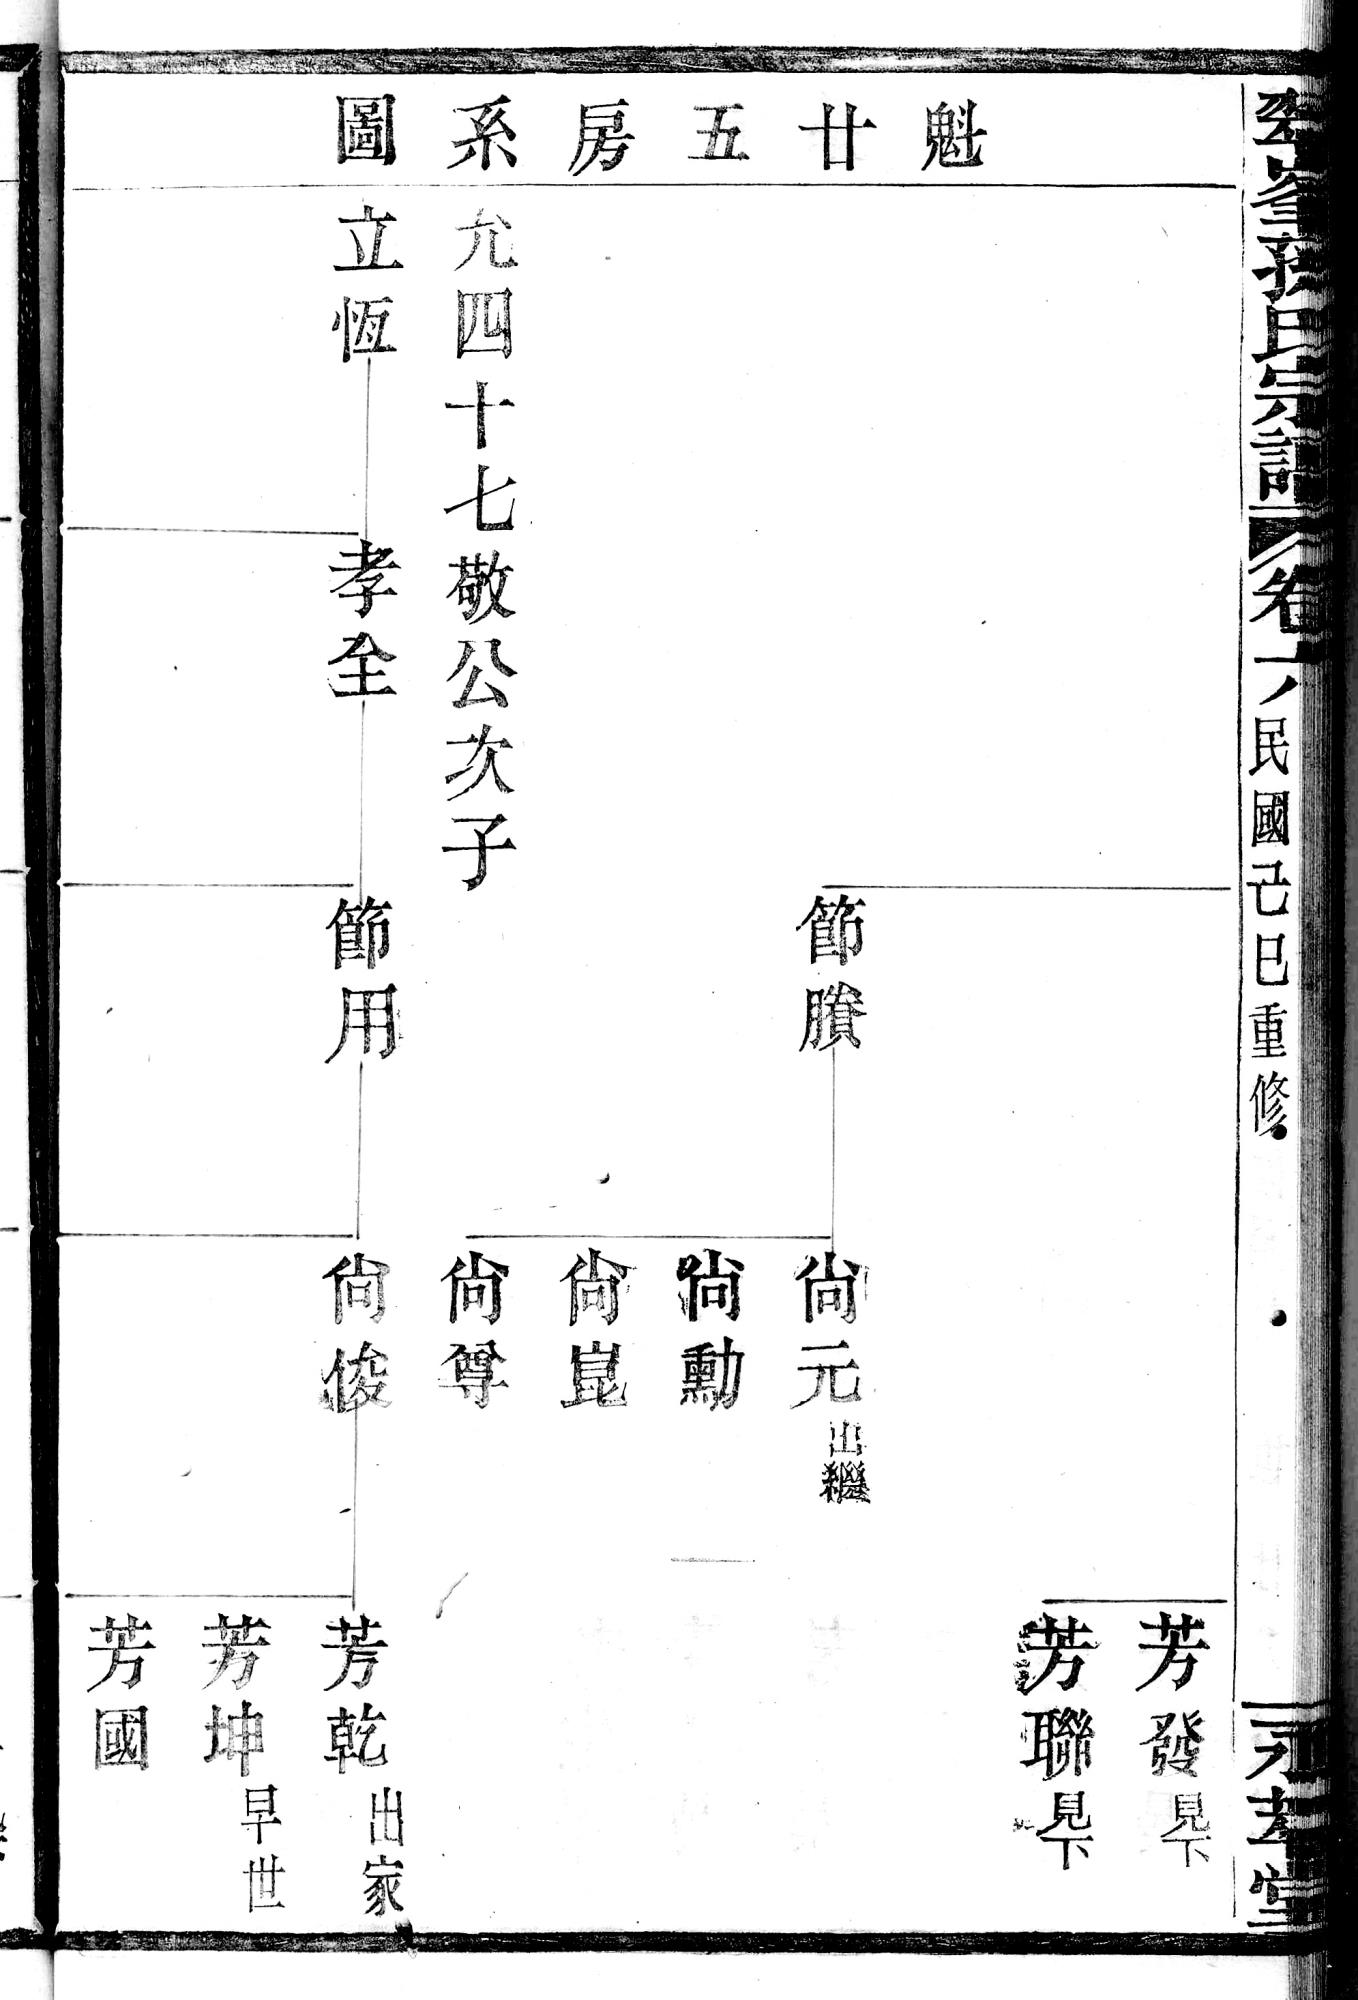 魁廿五房系圖
孫氏宗譜
卷
民國己巳重修
堂
芳發見下
芳聯見下
節牘
尙元出繼
尙勳
尙崑
尙尊
允四十七敬公次子
立恆
孝全
節用
尙俊
芳乾出家
芳坤早世
芳國